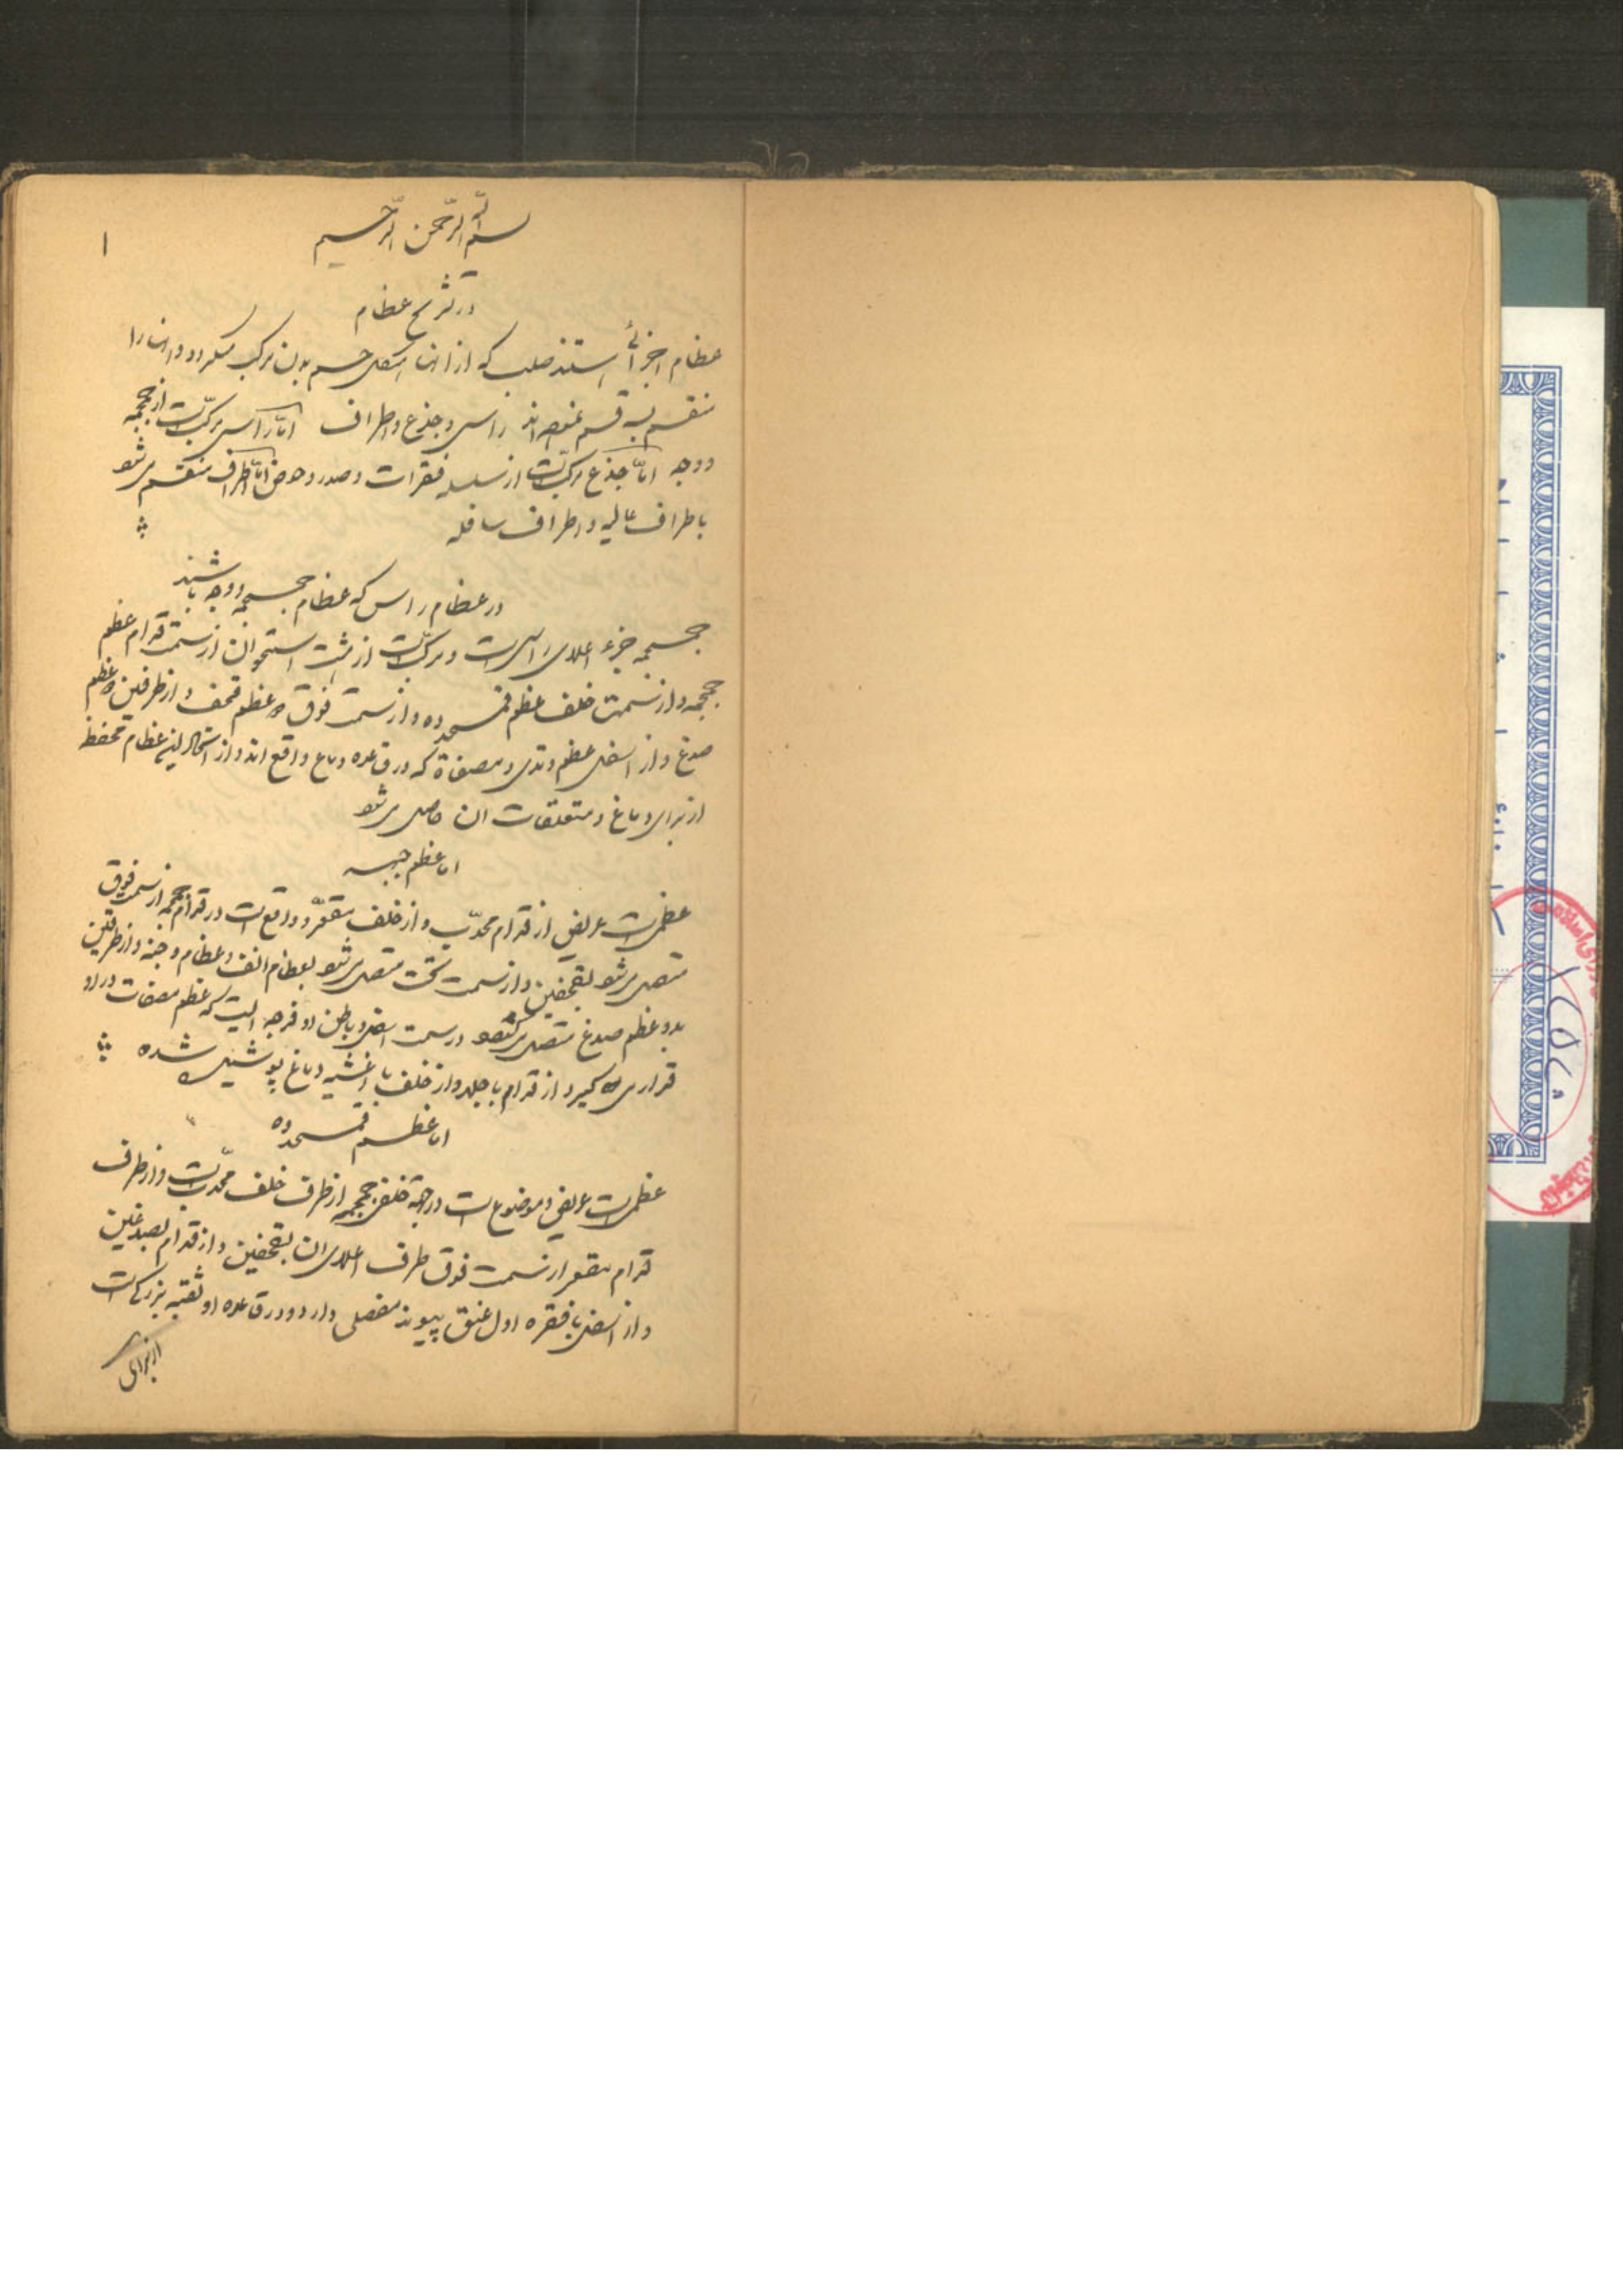 ۱
بسم الله الرحمن الرحیم
در تشریح عظام
عظام اجزائی استند صلب که از آنها اشکال جسم بدن مرکب میکردد و آنها را
منقسم بسه قسم نموده‌اند راس و جذع و اطراف امّا راس مرکّب است از جمجمه
و وجه امّا جذع مرکّب است از سلسله فقرات و صدر و حوض امّا اطراف منقسم می‌شود
باطراف عالیه و اطراف سافله
در عظام راس که عظام جمجمه و وجه باشند
جمجمه جزء اعلای راس است و مرکّب است از هشت استخوان از سمت قدام عظم
جبهه و از سمت خلف عظم قمحدوه و از سمت فوق ۲ عظم قحف و از طرفین ۲ عظم
صدغ و از اسفل عظم وتدی و مصفاة که در قاعده دماغ واقع‌اند و از اشکال این عظام محفظه
از برای دماغ و متعلقات آن حاصل می‌شود
اما عظم جبهه
عظمی است عریض از قدام محدّب و از خلف مقعّر و واقع است در قدام جمجمه از سمت فوق
متصل می‌شود بقحفین و از سمت تحت متصل می‌شود بعظام انف و عظام وجنه و از طرفین
بدو عظم صدغ متصل می‌شود در سمت اسفل و باطن او فرجه ایست که عظم مصفات در او
قرار می گیرد از قدام با جلد و از خلف با اغشیه دماغ پوشیده شده
اما عظم قمحدوه
عظمی است عریض و موضوع است در جهة خلفی جمجمه از طرف خلف محدّب است و از طرف
قدام مقعر از سمت فوق طرف اعلای آن بقحفین و از قدام بصدغین
و از اسفل با فقره اول عنق پیوند مفصلی دارد و در قاعده او ثقبه بزرگی است
از برای